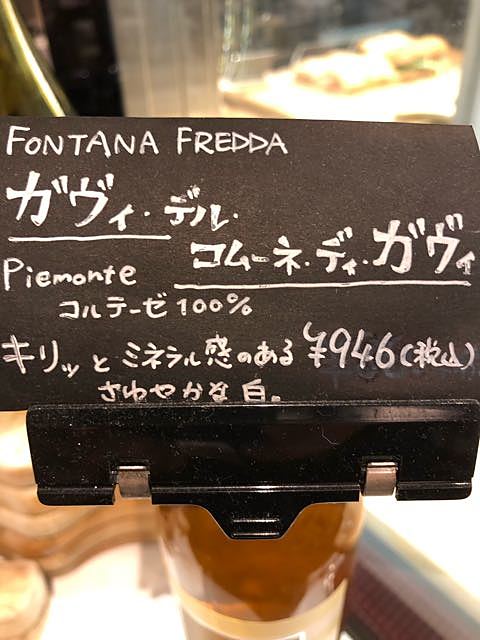 FONTANA FREDDA
ガヴィ・デル・
コムーネ・ディ・ガヴィ
Piemonte
コルテーゼ 100%
キリッとミネラル感のある ¥946(税込)
さわやかな白。